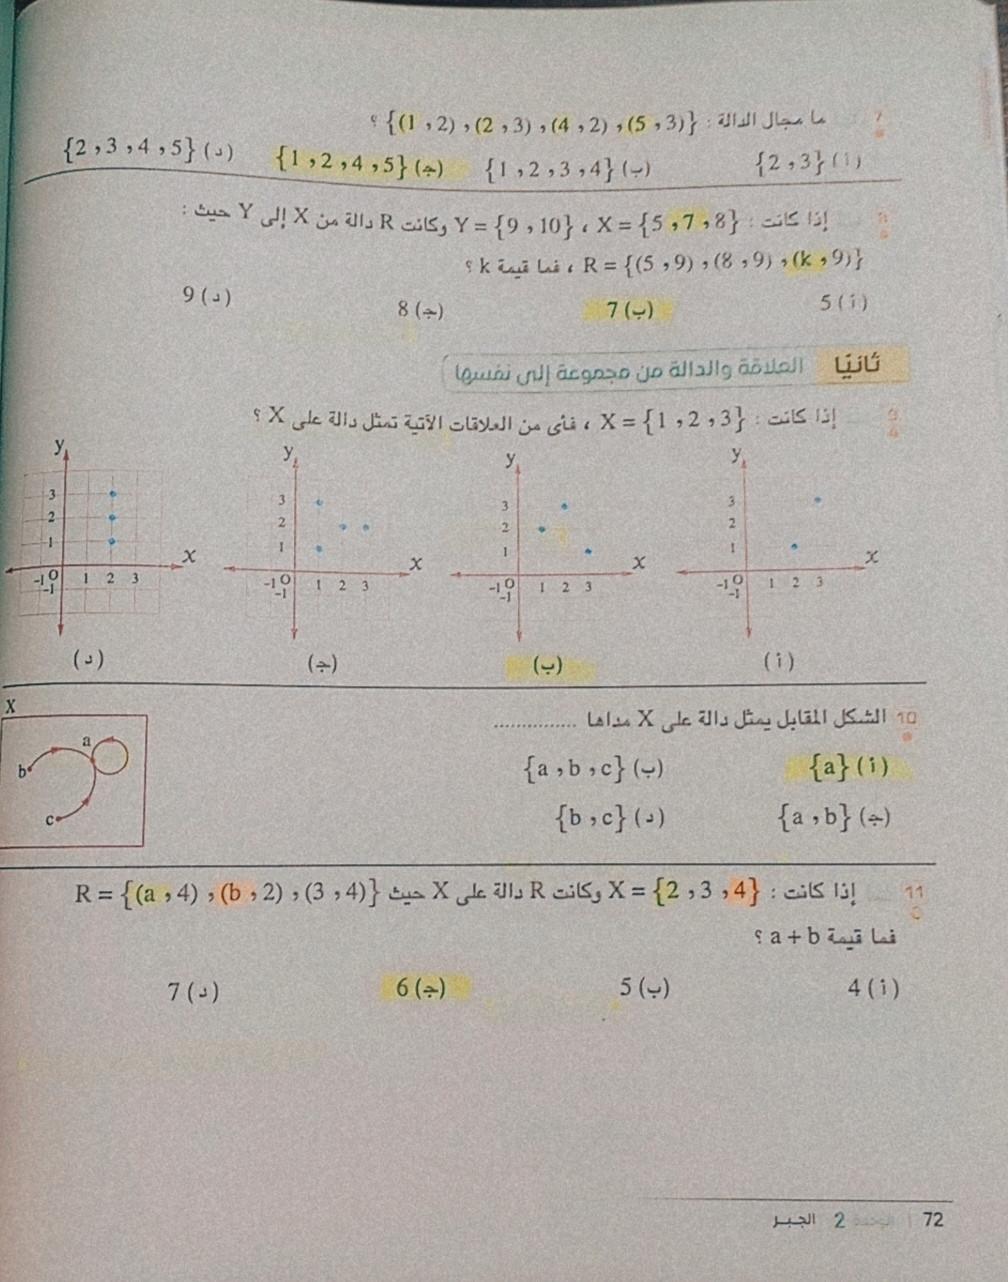 7 ما مجال الدالة : {(1 , 2) , (2 , 3) , (4 , 2) , (5 , 3)} ؟
(أ) {2 , 3} (ب) {1 , 2 , 3 , 4} (جـ) {1 , 2 , 4 , 5} (د) {2 , 3 , 4 , 5}
8 إذا كانت : X = {5 , 7 , 8} ، Y = {9 , 10} وكانت R دالة من X إلى Y حيث :
R = {(5 , 9) , (8 , 9) , (k , 9)} ، فما قيمة k ؟
(أ) 5 (ب) 7 (جـ) 8 (د) 9
ثانيًا العلاقة والدالة من مجموعة إلى نفسها
9 إذا كانت : X = {1 , 2 , 3} ، فأى من العلاقات الآتية تمثل دالة على X ؟
y y y y
3 3 3 3
2 2 2 2
1 1 1 1
x x x x
-1 O 1 2 3 -1 O 1 2 3 -1 O 1 2 3 -1 O 1 2 3
-1 -1 -1 -1
(أ) (ب) (جـ) (د)
10 الشكل المقابل يمثل دالة على X مداها ...............
X
a
b
c
(أ) {a} (ب) {a , b , c}
(جـ) {a , b} (د) {b , c}
11 إذا كانت : X = {2 , 3 , 4} وكانت R دالة على X حيث R = {(a , 4) , (b , 2) , (3 , 4)}
فما قيمة a + b ؟
(أ) 4 (ب) 5 (جـ) 6 (د) 7
72 | الوحدة 2 الجبر